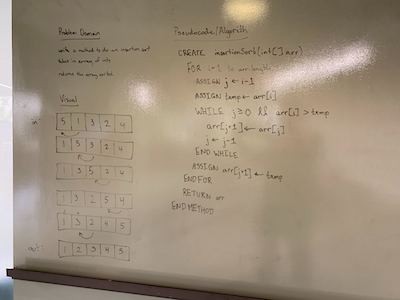 Problem Domain
write a method to do an insertion sort
takes in array of ints
returns the array sorted.
Visual
in:
5 1 3 2 4
1 5 3 2 4
1 3 5 2 4
1 3 2 5 4
1 3 2 4 5
out:
1 2 3 4 5
Pseudocode/Algorithm
CREATE insertionSort(int[] arr)
FOR i=1 to arr.length
ASSIGN j ← i-1
ASSIGN temp ← arr[i]
WHILE j ≥ 0 && arr[j] > temp
arr[j+1] ← arr[j]
j ← j-1
END WHILE
ASSIGN arr[j+1] ← temp
END FOR
RETURN arr
END METHOD